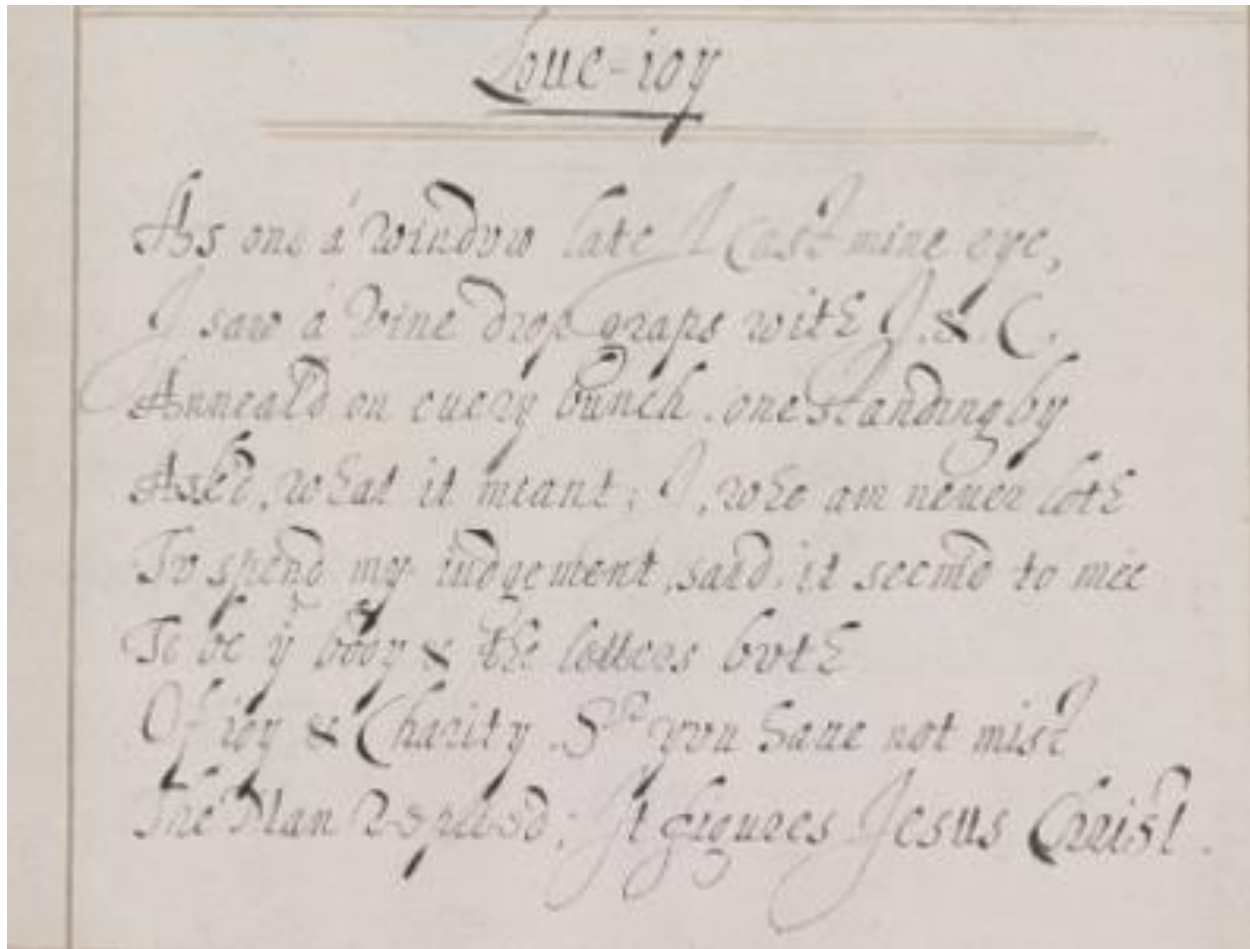 Loue-ioy
As one a window late I Cast mine eye,
I saw a Vine drop graps with J. & C.
Anneal'd on euery bunch. one standing by
Ask'd, what it meant; I, who am neuer loth
To spend my iudgement, said, it seem'd to mee
To be yͤ body & the letters both
Of ioy & Charity. Sͬ you haue not mist
The Man Replied; It figures Jesus Christ.